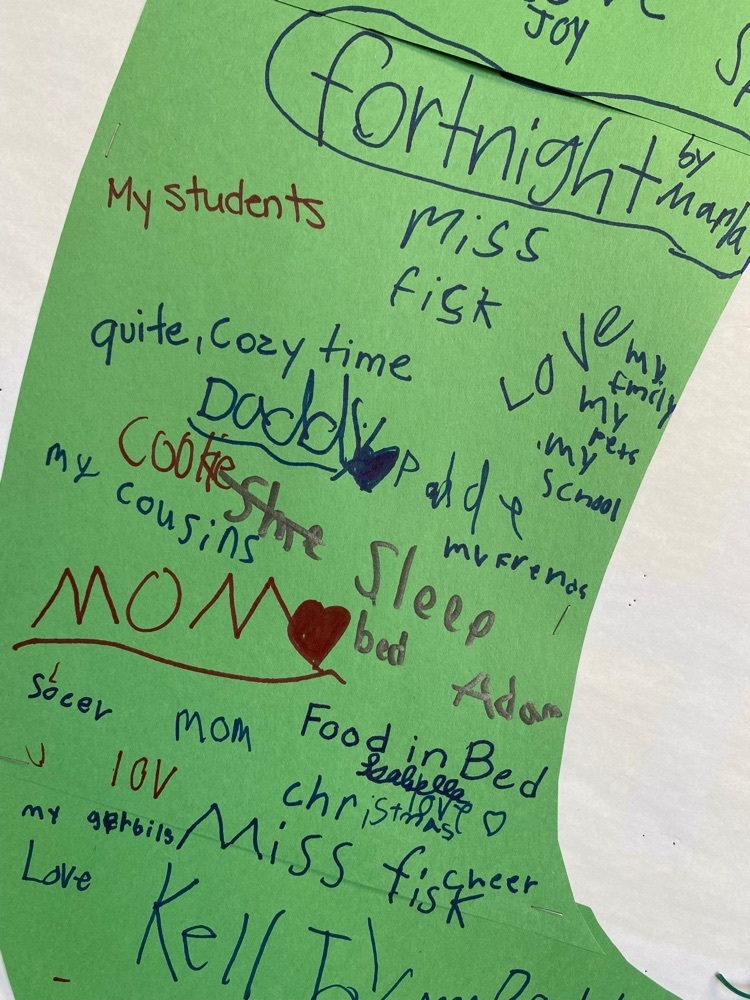 Joy
fortnight
by
Marla
My students
Miss
fisk
quite, Cozy time
Love
my
fmily
my
pets
my
School
Daddy
Cookie
my
cousins
my Frends
Sleep
MOM
bed
Adam
Socer
mom
Food in Bed
Isabella
IOV
christmas
love
my gerbils
Miss
fisk
cheer
Love
Kell
Joy